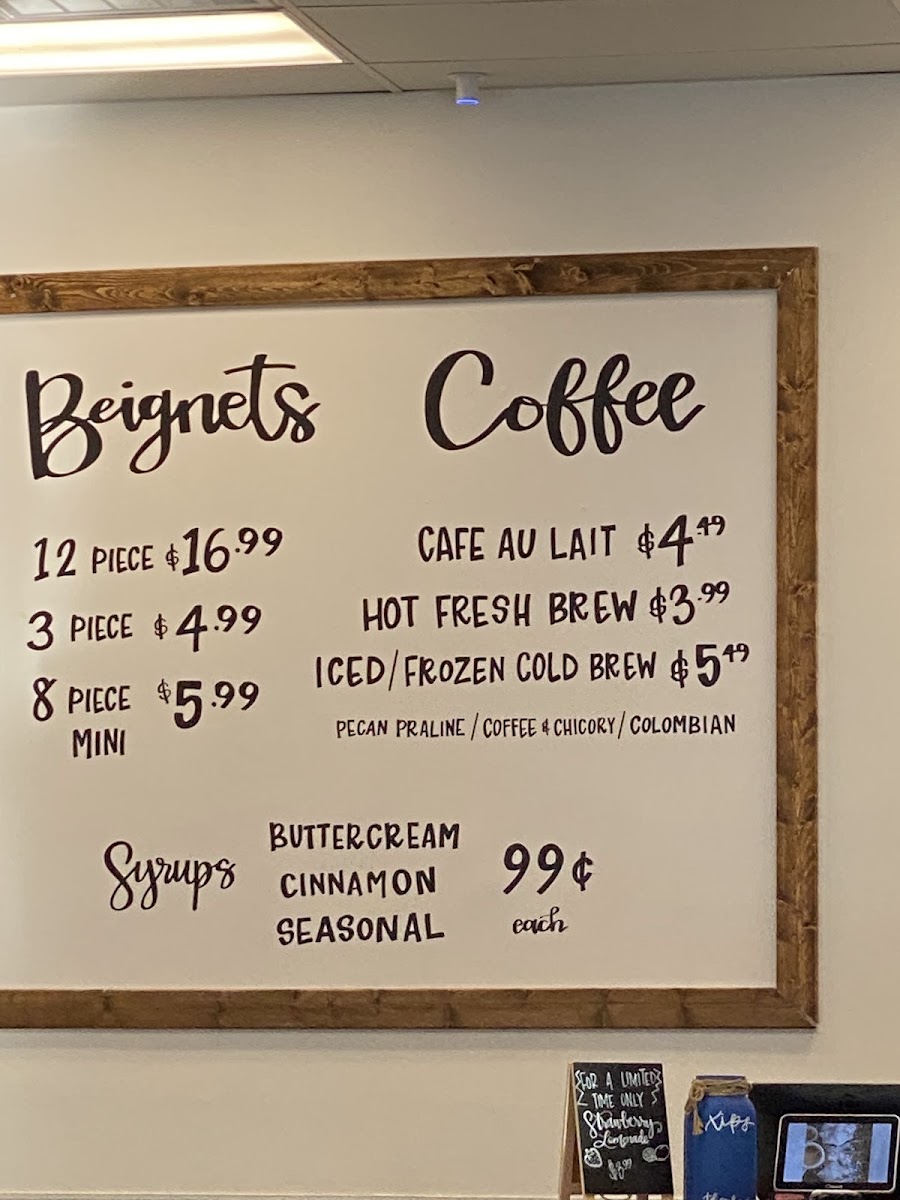 Beignets
12 PIECE $16.99
3 PIECE $4.99
8 PIECE $5.99
MINI
Coffee
CAFE AU LAIT $4.49
HOT FRESH BREW $3.99
ICED/FROZEN COLD BREW $5.49
PECAN PRALINE / COFFEE & CHICORY / COLOMBIAN
Syrups
BUTTERCREAM
CINNAMON
SEASONAL
99¢
each
FOR A LIMITED
TIME ONLY
Strawberry
Lemonade
$3.99
Tips